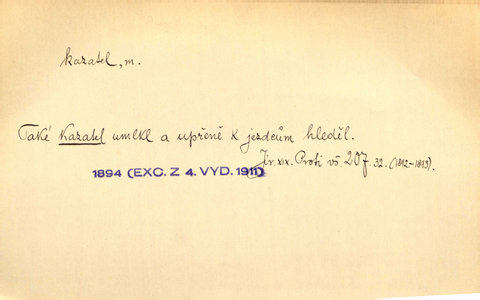 kazatel, m.
Také Kazatel umlkl a upřeně k jezdcům hleděl.
Jir. XIX. Proti vš 207. 32. (1892–1893).
1894 (EXC. Z 4. VYD. 1911)